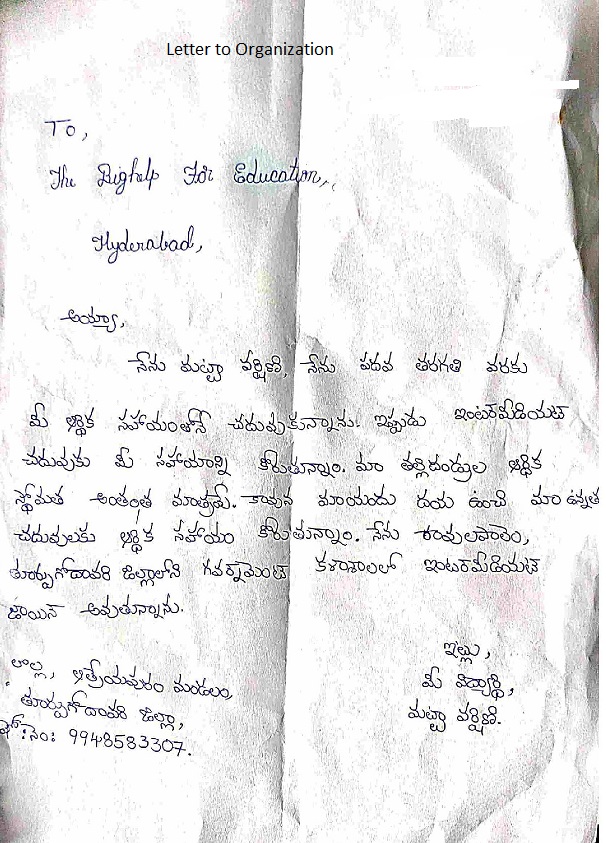 Letter to Organization
To,
The Bighelp For Education,
Hyderabad,
అయ్యా,
నేను మట్టా వర్షిణి, నేను పదవ తరగతి వరకు
మీ ఆర్థిక సహాయంతోనే చదువుకున్నాను. ఇప్పుడు ఇంటర్‌మీడియట్
చదువుకు మీ సహాయాన్ని కోరుతున్నాం. మా తల్లిదండ్రుల ఆర్థిక
స్థోమత అంతంత మాత్రమే. కావున మాయందు దయ ఉంచి మా ఉన్నత
చదువులకు ఆర్థిక సహాయం కోరుతున్నాం. నేను రావులపాలెం,
తూర్పుగోదావరి జిల్లాలోని గవర్నమెంట్ కళాశాలలో ఇంటర్‌మీడియట్
జాయిన్ అవుతున్నాను.
ఇట్లు,
మీ విద్యార్థి,
మట్టా వర్షిణి.
లొల్ల, ఆత్రేయపురం మండలం,
తూర్పుగోదావరి జిల్లా,
ఫోన్:నెం: 9948583307.